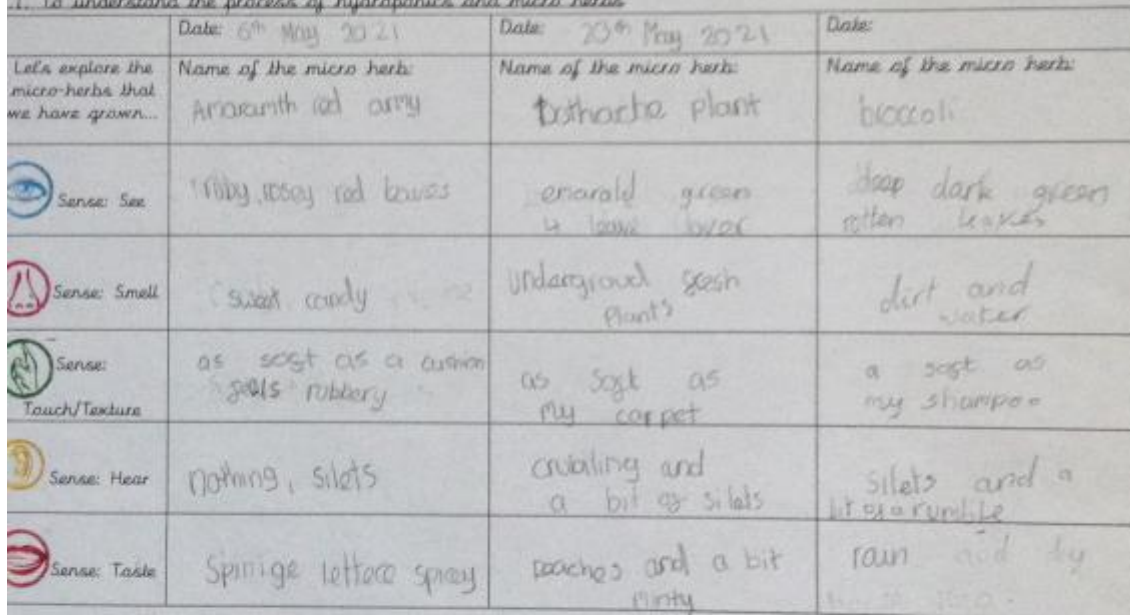 1. To understand the process of hydroponics and micro herbs
Date: 6th May 2021
Date: 20th May 2021
Date:
Let's explore the
micro-herbs that
we have grown...
Name of the micro herb:
Amaranth red army
Name of the micro herb:
plant
Name of the micro herb:
broccoli
Sense: See
rosey red
emarald green
4
deep dark green
rotten leaves
Sense: Smell
sweet candy
Undergroud gresh
Plants
dirt and
water
Sense:
Touch/Texture
as sogt as a cushion
geels rubbery
as sogt as
my carpet
a sogt as
my shampoo
Sense: Hear
nothing, silets
and
a bit og silets
silets and a
bit og a rumble
Sense: Taste
Spinige lettece spicey
peaches and a bit
minty
rain and